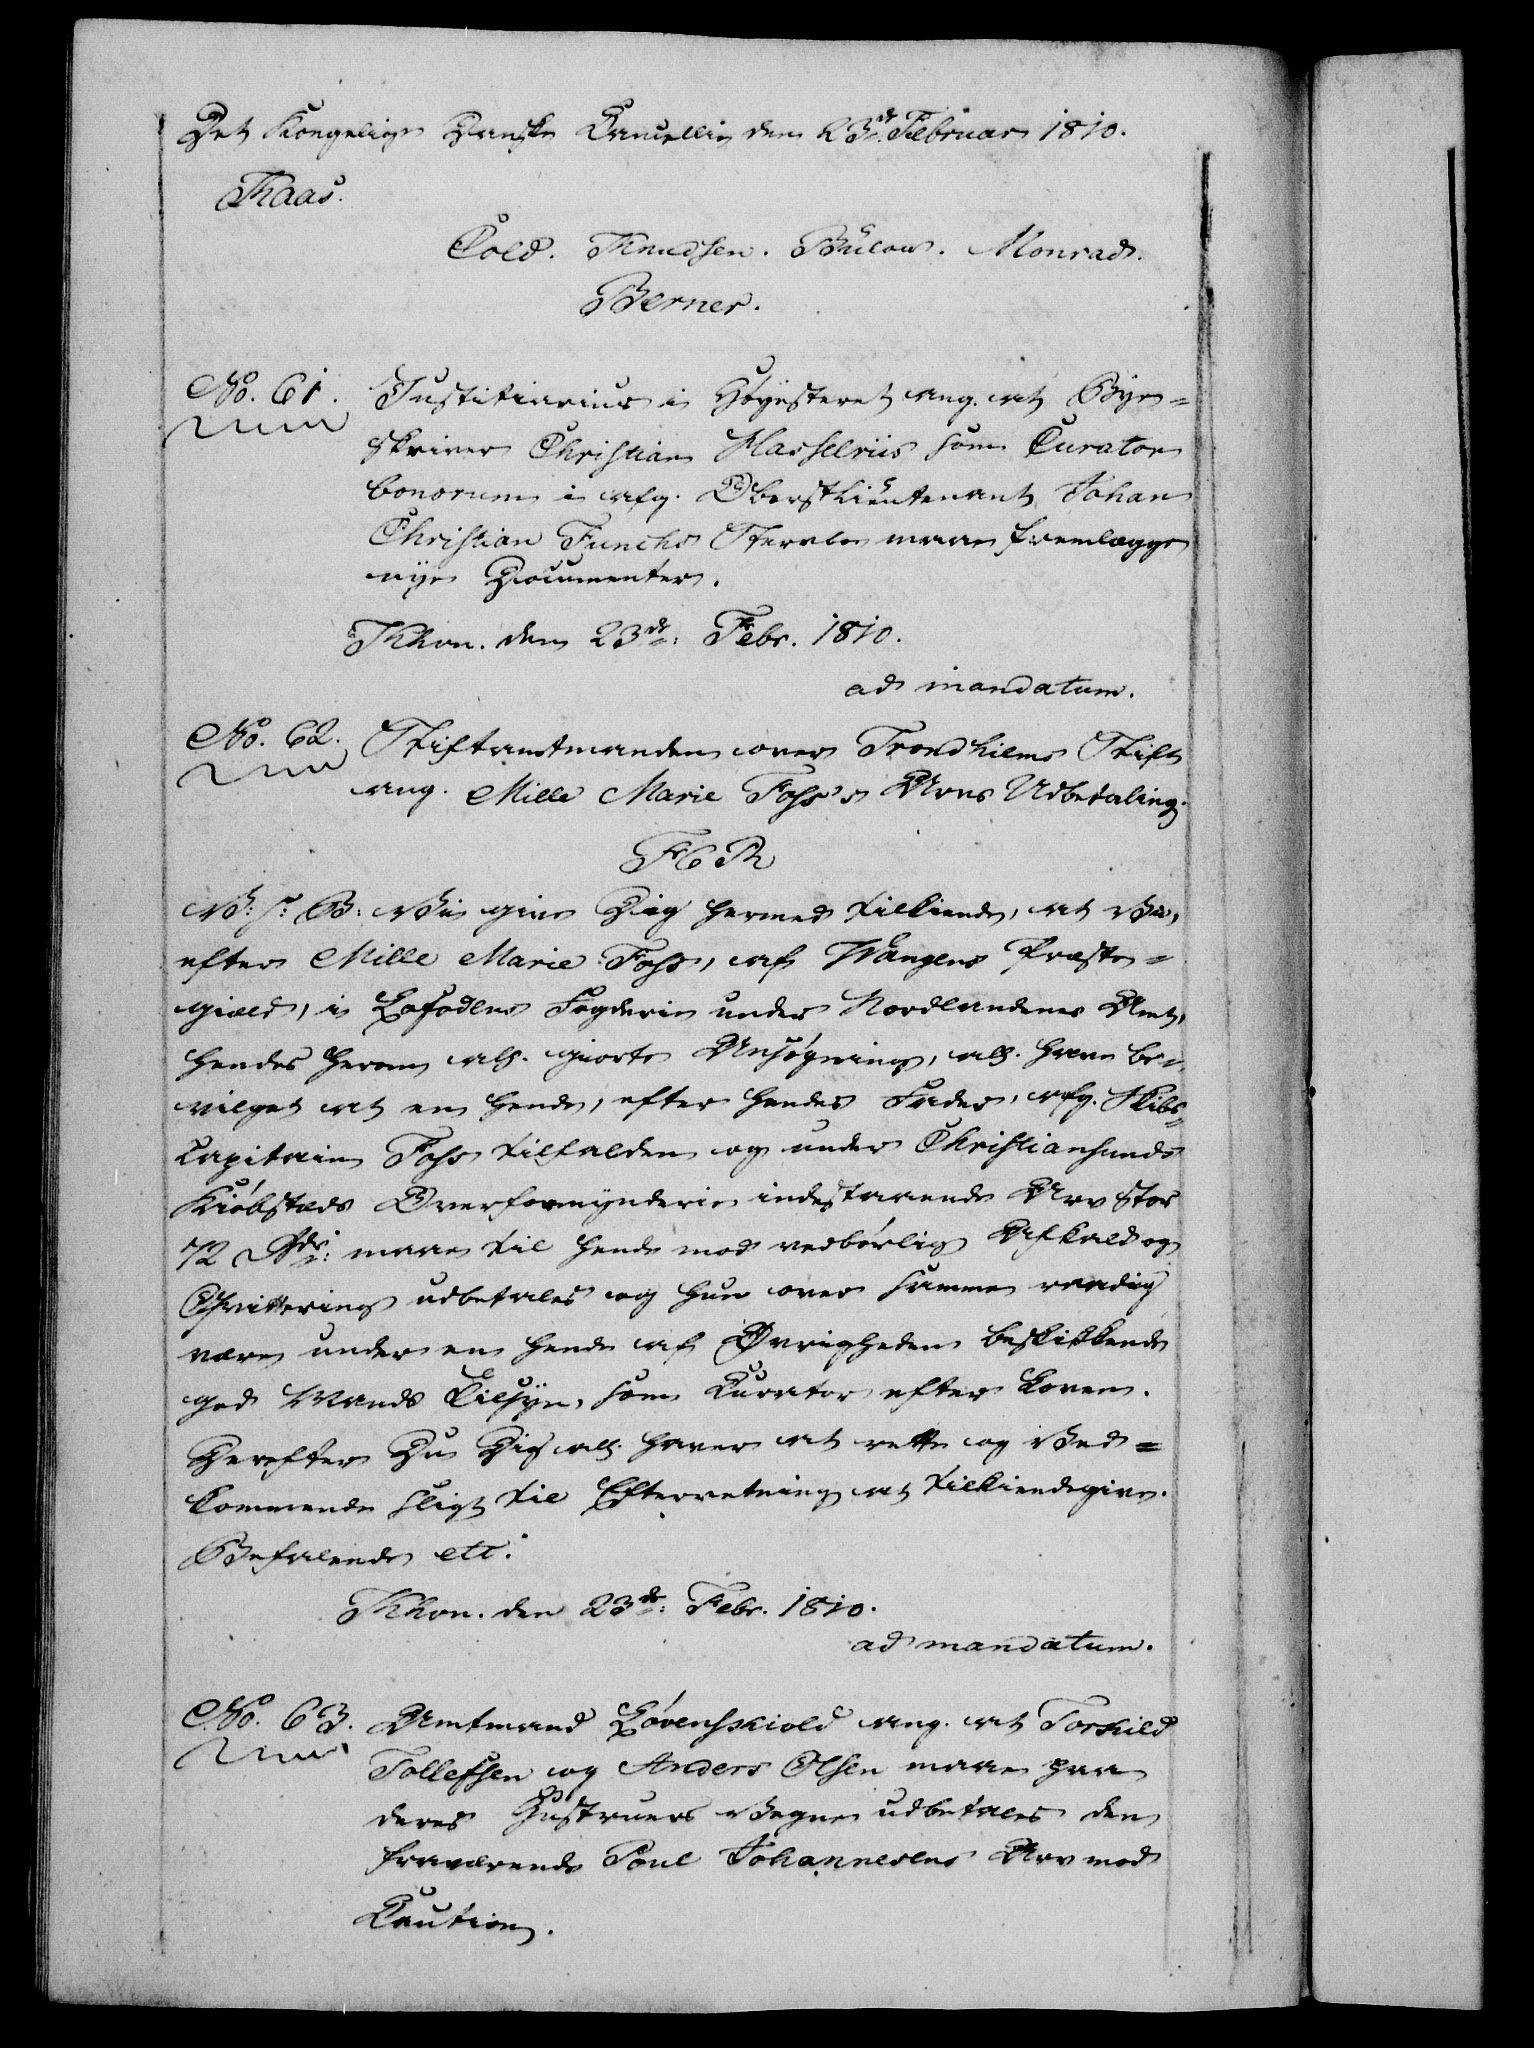 Det Kongelige Danske Cancellie den 23de Februar 1810.
Kaas.
Cold. Knudsen. Bülow. Monrad.
Berner.
No. 61. Justitiarius i Høyesteret ang. at Bye=
skriver Christian Hasselriis som Curator
bonorum i afg. Oberstlieutenant Johan
Christian Funchs Sterboe maae fremlægge
nye Documenter.
Khvn. den 23de: Febr. 1810.
ad mandatum.
No. 62. Stiftamtmanden over Trondhiems Stift
ang. Mille Marie Foss's Arvs Udbetaling.
F 6 R
V: s: G: Vi give Dig hermed tilkiende, at Vi,
efter Mille Marie Foss, af Waagens Præste=
gield, i Lofodens Fogderie under Nordlandenes Amt,
hendes herom all. giorte Ansøgning, all. have be=
vilget at en hende, efter hendes Fader, afg. Skibs=
Capitain Foss tilfalden og under Christiansunds
Kiøbstæds Overformynderie indestaaende Arv stor
72 Rdr: maae til hende mod vedbørlig Afkald og
Qvittering udbetales og hun over samme raadig
være under en hende af Øvrigheden beskikkende
god Mands Tilsyn, som Curator efter Loven.
Derefter Du Dig all. haver at rette og Ved=
kommende sligt til Efterretning at tilkiendegive.
Befalende etc.
Khvn. den 23de: Febr. 1810.
ad mandatum.
No. 63. Amtmand Løvenskiold ang. at Torkild
Tollefsen og Anders Olsen maae paa
deres Hustruers Vegne udbetales den
fraværende Poul Johannesens Arv mod
Caution.